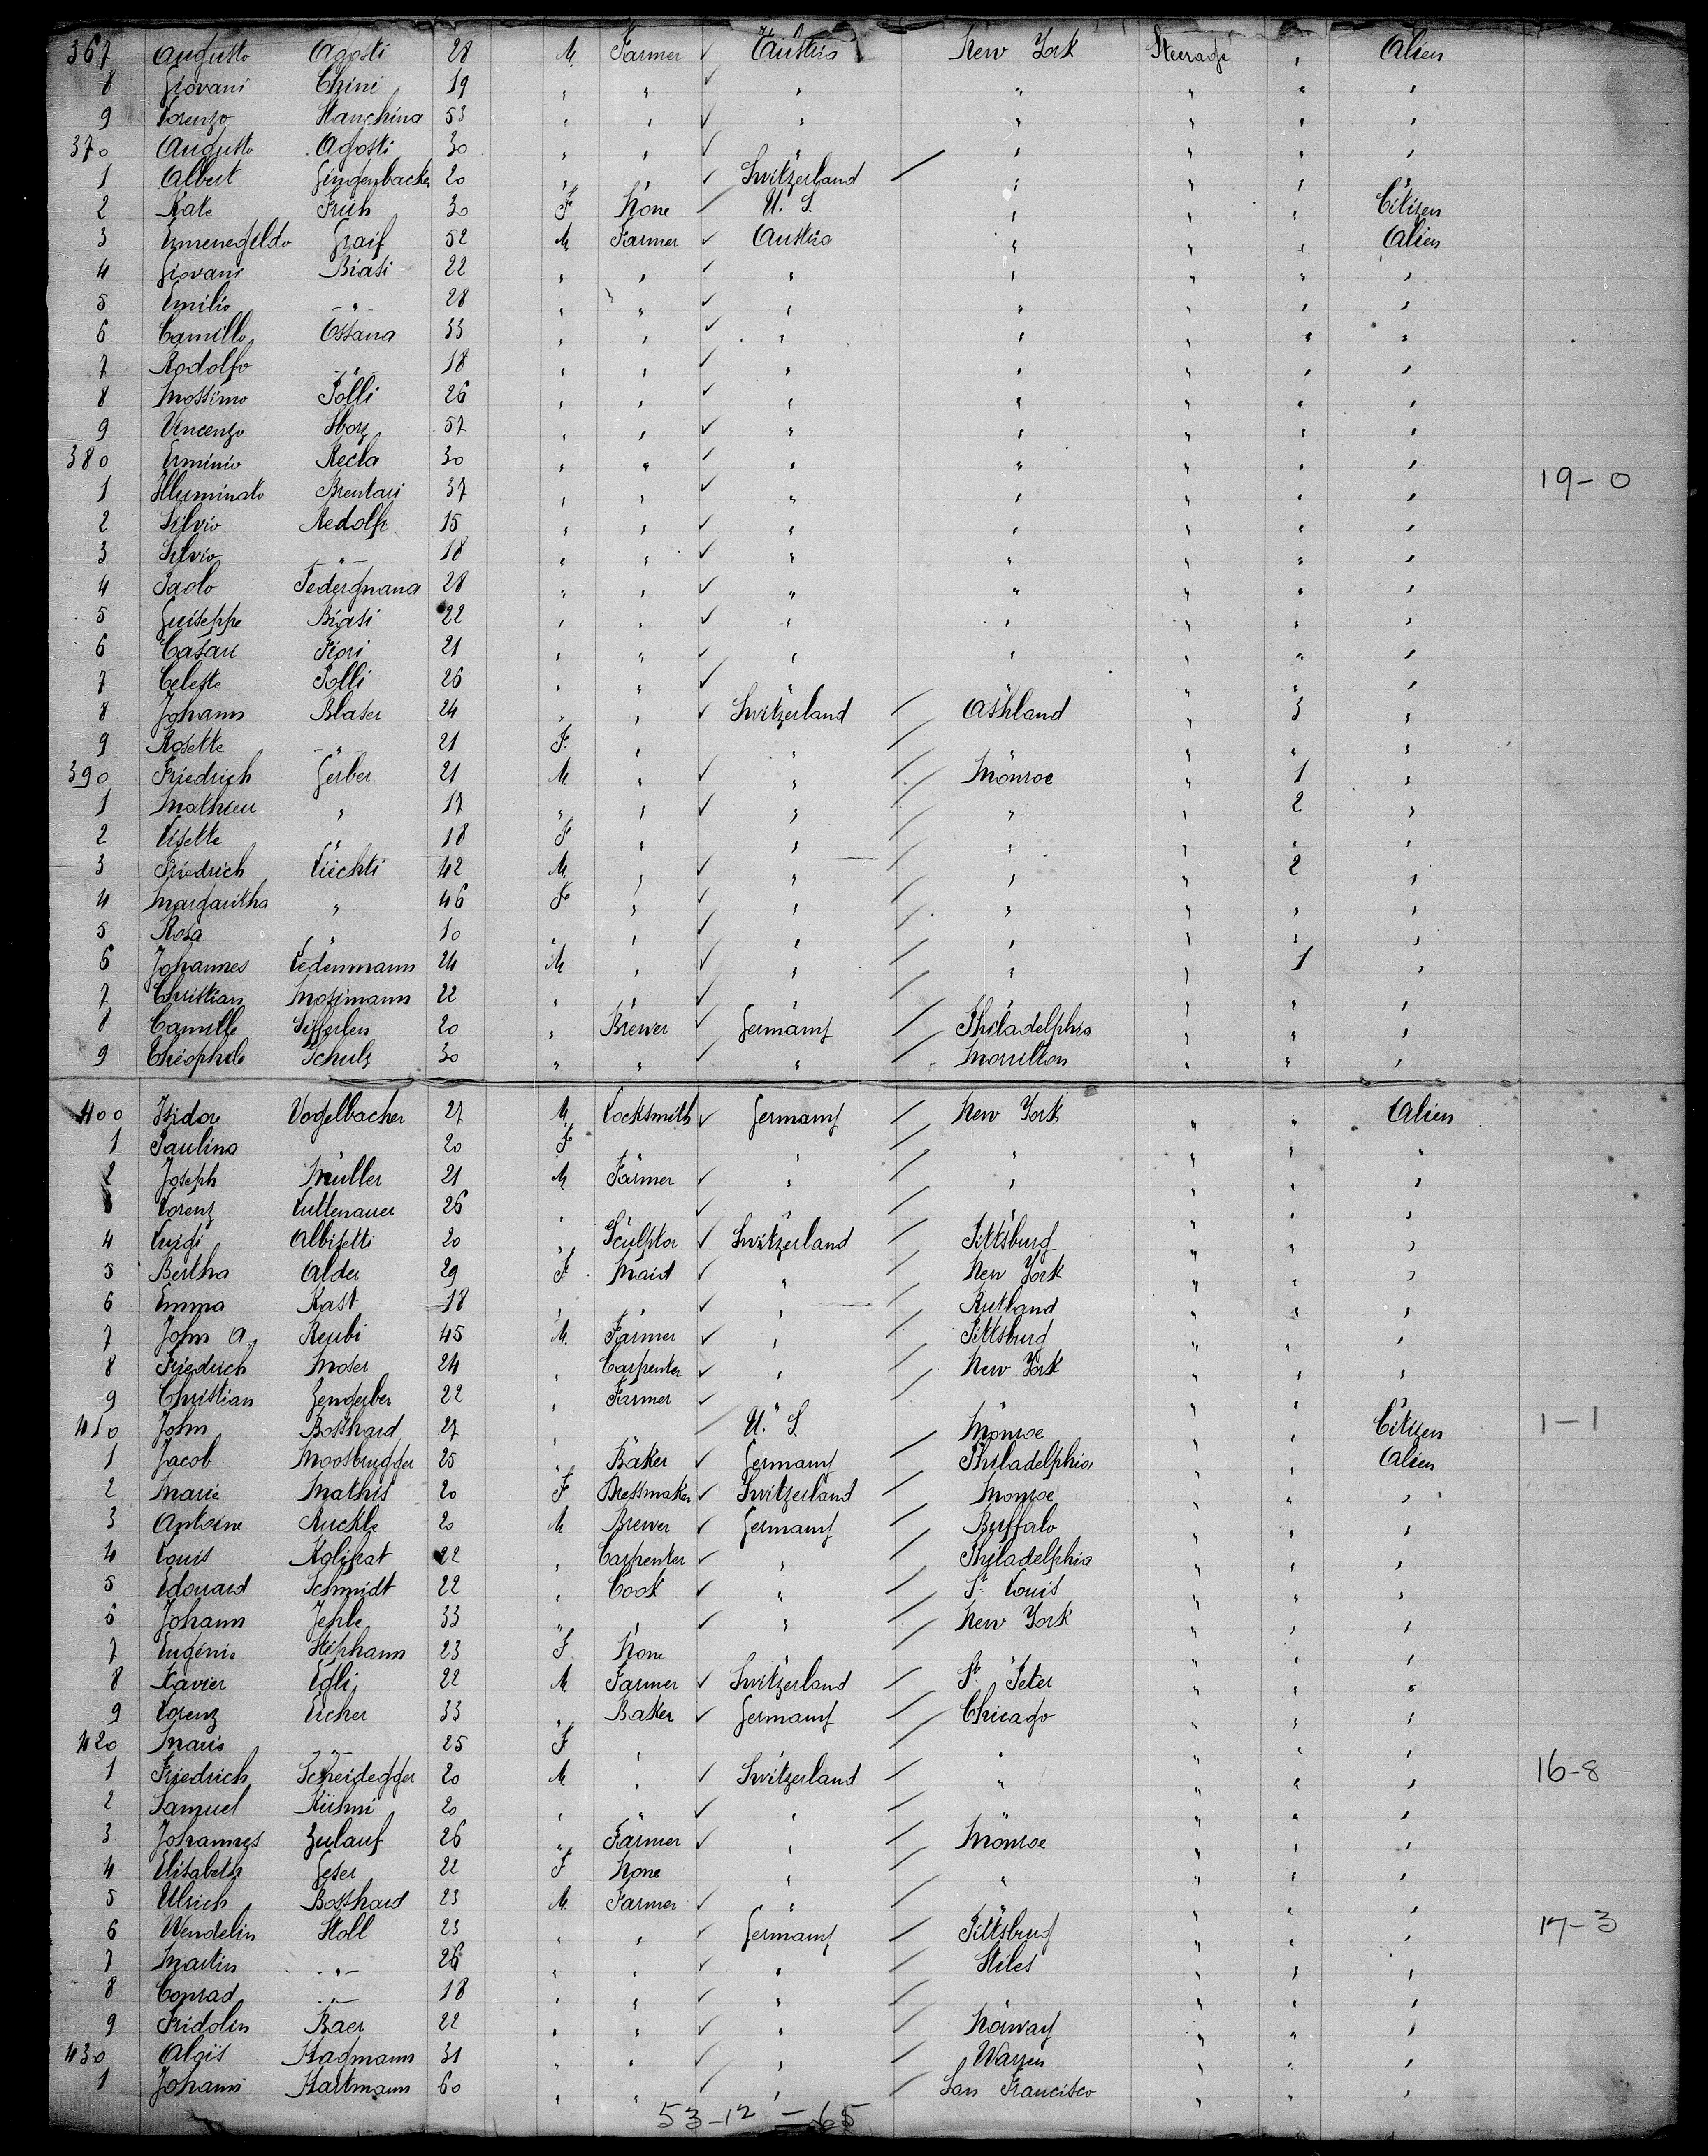 367 Augusto Agosti 28 M. Farmer ✓ Austria New York Steerage " Alien
8 Giovani Chini 19 " " ✓ " " " " "
9 Lorenzo Stanchina 53 " " ✓ " " " " "
370 Augusto Agosti 30 " " ✓ " " " " "
1 Albert Gingenbacher 20 " " ✓ Switzerland / " " " "
2 Kate Früh 30 F None / U. S. " " " Citizen
3 Ermenegildo Graif 52 M Farmer ✓ Austria " " " Alien
4 Giovani Biasi 22 " " ✓ " " " " "
5 Emilio " 28 " " ✓ " " " " "
6 Camillo Ossana 33 " " ✓ " " " " "
7 Rodolfo " 18 " " ✓ " " " " "
8 Mossimo Polli 26 " " ✓ " " " " "
9 Vincenzo 57 " " ✓ " " " " "
380 Erminio Recla 30 " " ✓ " " " " "
1 Illuminato Brentari 37 " " ✓ " " " " " 19-0
2 Silvio Redolf 15 " " ✓ " " " " "
3 Silvio " 18 " " ✓ " " " " "
4 Paolo Pedergnana 28 " " ✓ " " " " "
5 Guiseppe Biasi 22 " " ✓ " " " " "
6 Casari Fiori 21 " " ✓ " " " " "
7 Celeste Polli 26 " " ✓ " " " " "
8 Johann Blaser 24 " " ✓ Switzerland / Ashland " 3 "
9 Rosette " 21 F. " " / " " "
390 Friedrich Gerber 21 M " ✓ " / Monroe " 1 "
1 Mathieu " 17 " " ✓ " / " " 2 "
2 Lisette " 18 F " " / " " " "
3 Friedrich Liechti 42 M. " ✓ " / " " 2 "
4 Margaritha " 46 F " ✓ " / " " " "
5 Rosa " 10 " " ✓ " / " " " "
6 Johannes Ledermann 24 M " ✓ " / " " 1 "
7 Christian Mosimann 22 " " ✓ " / " " " "
8 Camille Sifferlen 20 " Brewer ✓ Germany / Philadelphia " " "
9 Théophile Schulz 30 " " ✓ " / Morrilton " " "
400 Isidore Vogelbacher 27 M. Locksmith ✓ Germany / New York " " Alien
1 Paulina 20 F " " / " " " "
2 Joseph Müller 21 M Farmer ✓ " / " " " "
3 Lorenz Luttenauer 26 " " ✓ " / " " " "
4 Luigi Albisetti 20 " Sculptor ✓ Switzerland / Pittsburg " " "
5 Bertha Alder 29 F Maid ✓ " / New York " " "
6 Emma Kast 18 " " ✓ " / Rutland " " "
7 John A. Reubi 45 M. Farmer ✓ " / Pittsburg " " "
8 Friedrich Moser 24 " Carpenter ✓ " / New York " " "
9 Christian Zengerben 22 " Farmer ✓ " / " " " "
410 John Bosshard 27 " / U. S. Monroe " " Citizen 1-1
1 Jacob Moosbrugger 25 " Baker ✓ Germany / Philadelphia " " Alien
2 Marie Mathis 20 F Dressmaker ✓ Switzerland / Monroe " " "
3 Antoine Ruckle 20 M Brewer ✓ Germany / Buffalo " " "
4 Louis 22 " Carpenter ✓ " / Philadelphia " " "
5 Edouard Schmidt 22 " Cook ✓ " / St. Louis " " "
6 Johann Jehle 33 " " ✓ " / New York " " "
7 Eugénie Stephann 23 F None " / " " " "
8 Xavier Egli 22 M. Farmer ✓ Switzerland / St. Peter " " "
9 Lorenz Eicher 33 " Baker ✓ Germany / Chicago " " "
420 Marie " 25 F " " / " " " "
1 Friedrich Scheidegger 20 M " ✓ Switzerland / " " " " 16-8
2 Samuel Kühni 20 " " ✓ " / " " " "
3 Johannes Zulauf 26 " Farmer ✓ " / Monroe " " "
4 Elisabeth Geser 22 F None " / " " " "
5 Ulrich Bosshard 23 M. Farmer ✓ " / " " " "
6 Wendelin Stoll 23 " " ✓ Germany / Pittsburg " " " 17-3
7 Martin " 26 " " ✓ " / Stiles " " "
8 Conrad " 18 " " ✓ " / " " " "
9 Fridolin Baer 22 " " ✓ " / Norway " " "
430 Aloïs Hagmann 31 " " ✓ " / Warren " " "
1 Johann Hartmann 60 " " ✓ " / San Francisco " " "
53-12 = 65